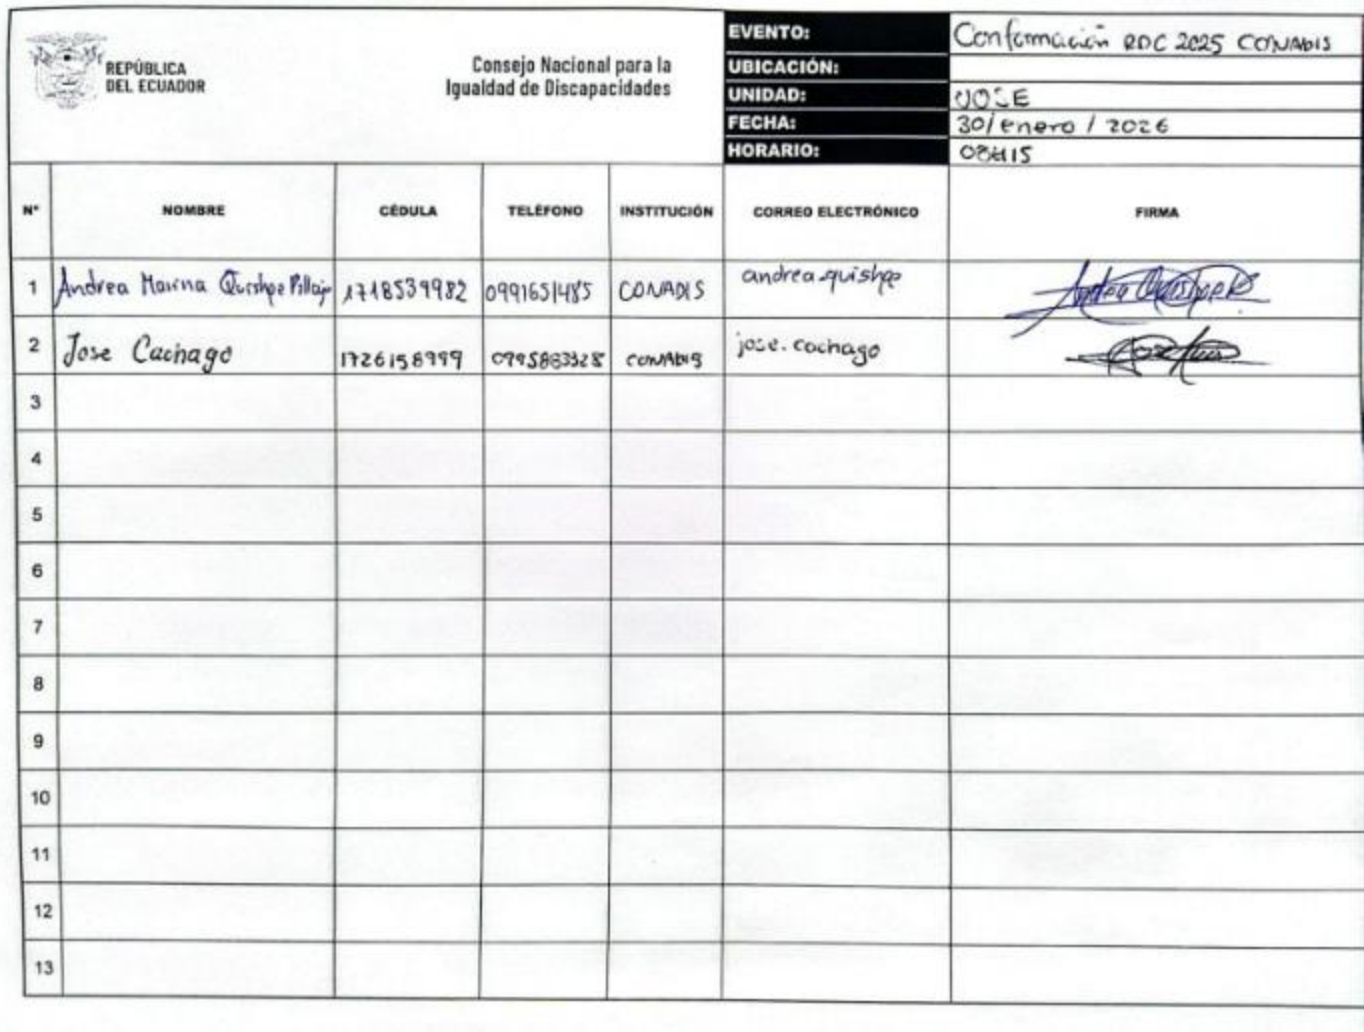 REPÚBLICA
DEL ECUADOR
Consejo Nacional para la
Igualdad de Discapacidades
EVENTO: Conformación RDC 2025 CONADIS
UBICACIÓN:
UNIDAD:
FECHA: 30/enero/2026
HORARIO: 08H15
N° NOMBRE CÉDULA TELÉFONO INSTITUCIÓN CORREO ELECTRÓNICO FIRMA
1 Andrea Marina Quishpe Pillajo 1718539982 0991651485 CONADIS andrea.quishpe
2 Jose Cachago 1726158999 CONADIS jose.cachago
3
4
5
6
7
8
9
10
11
12
13